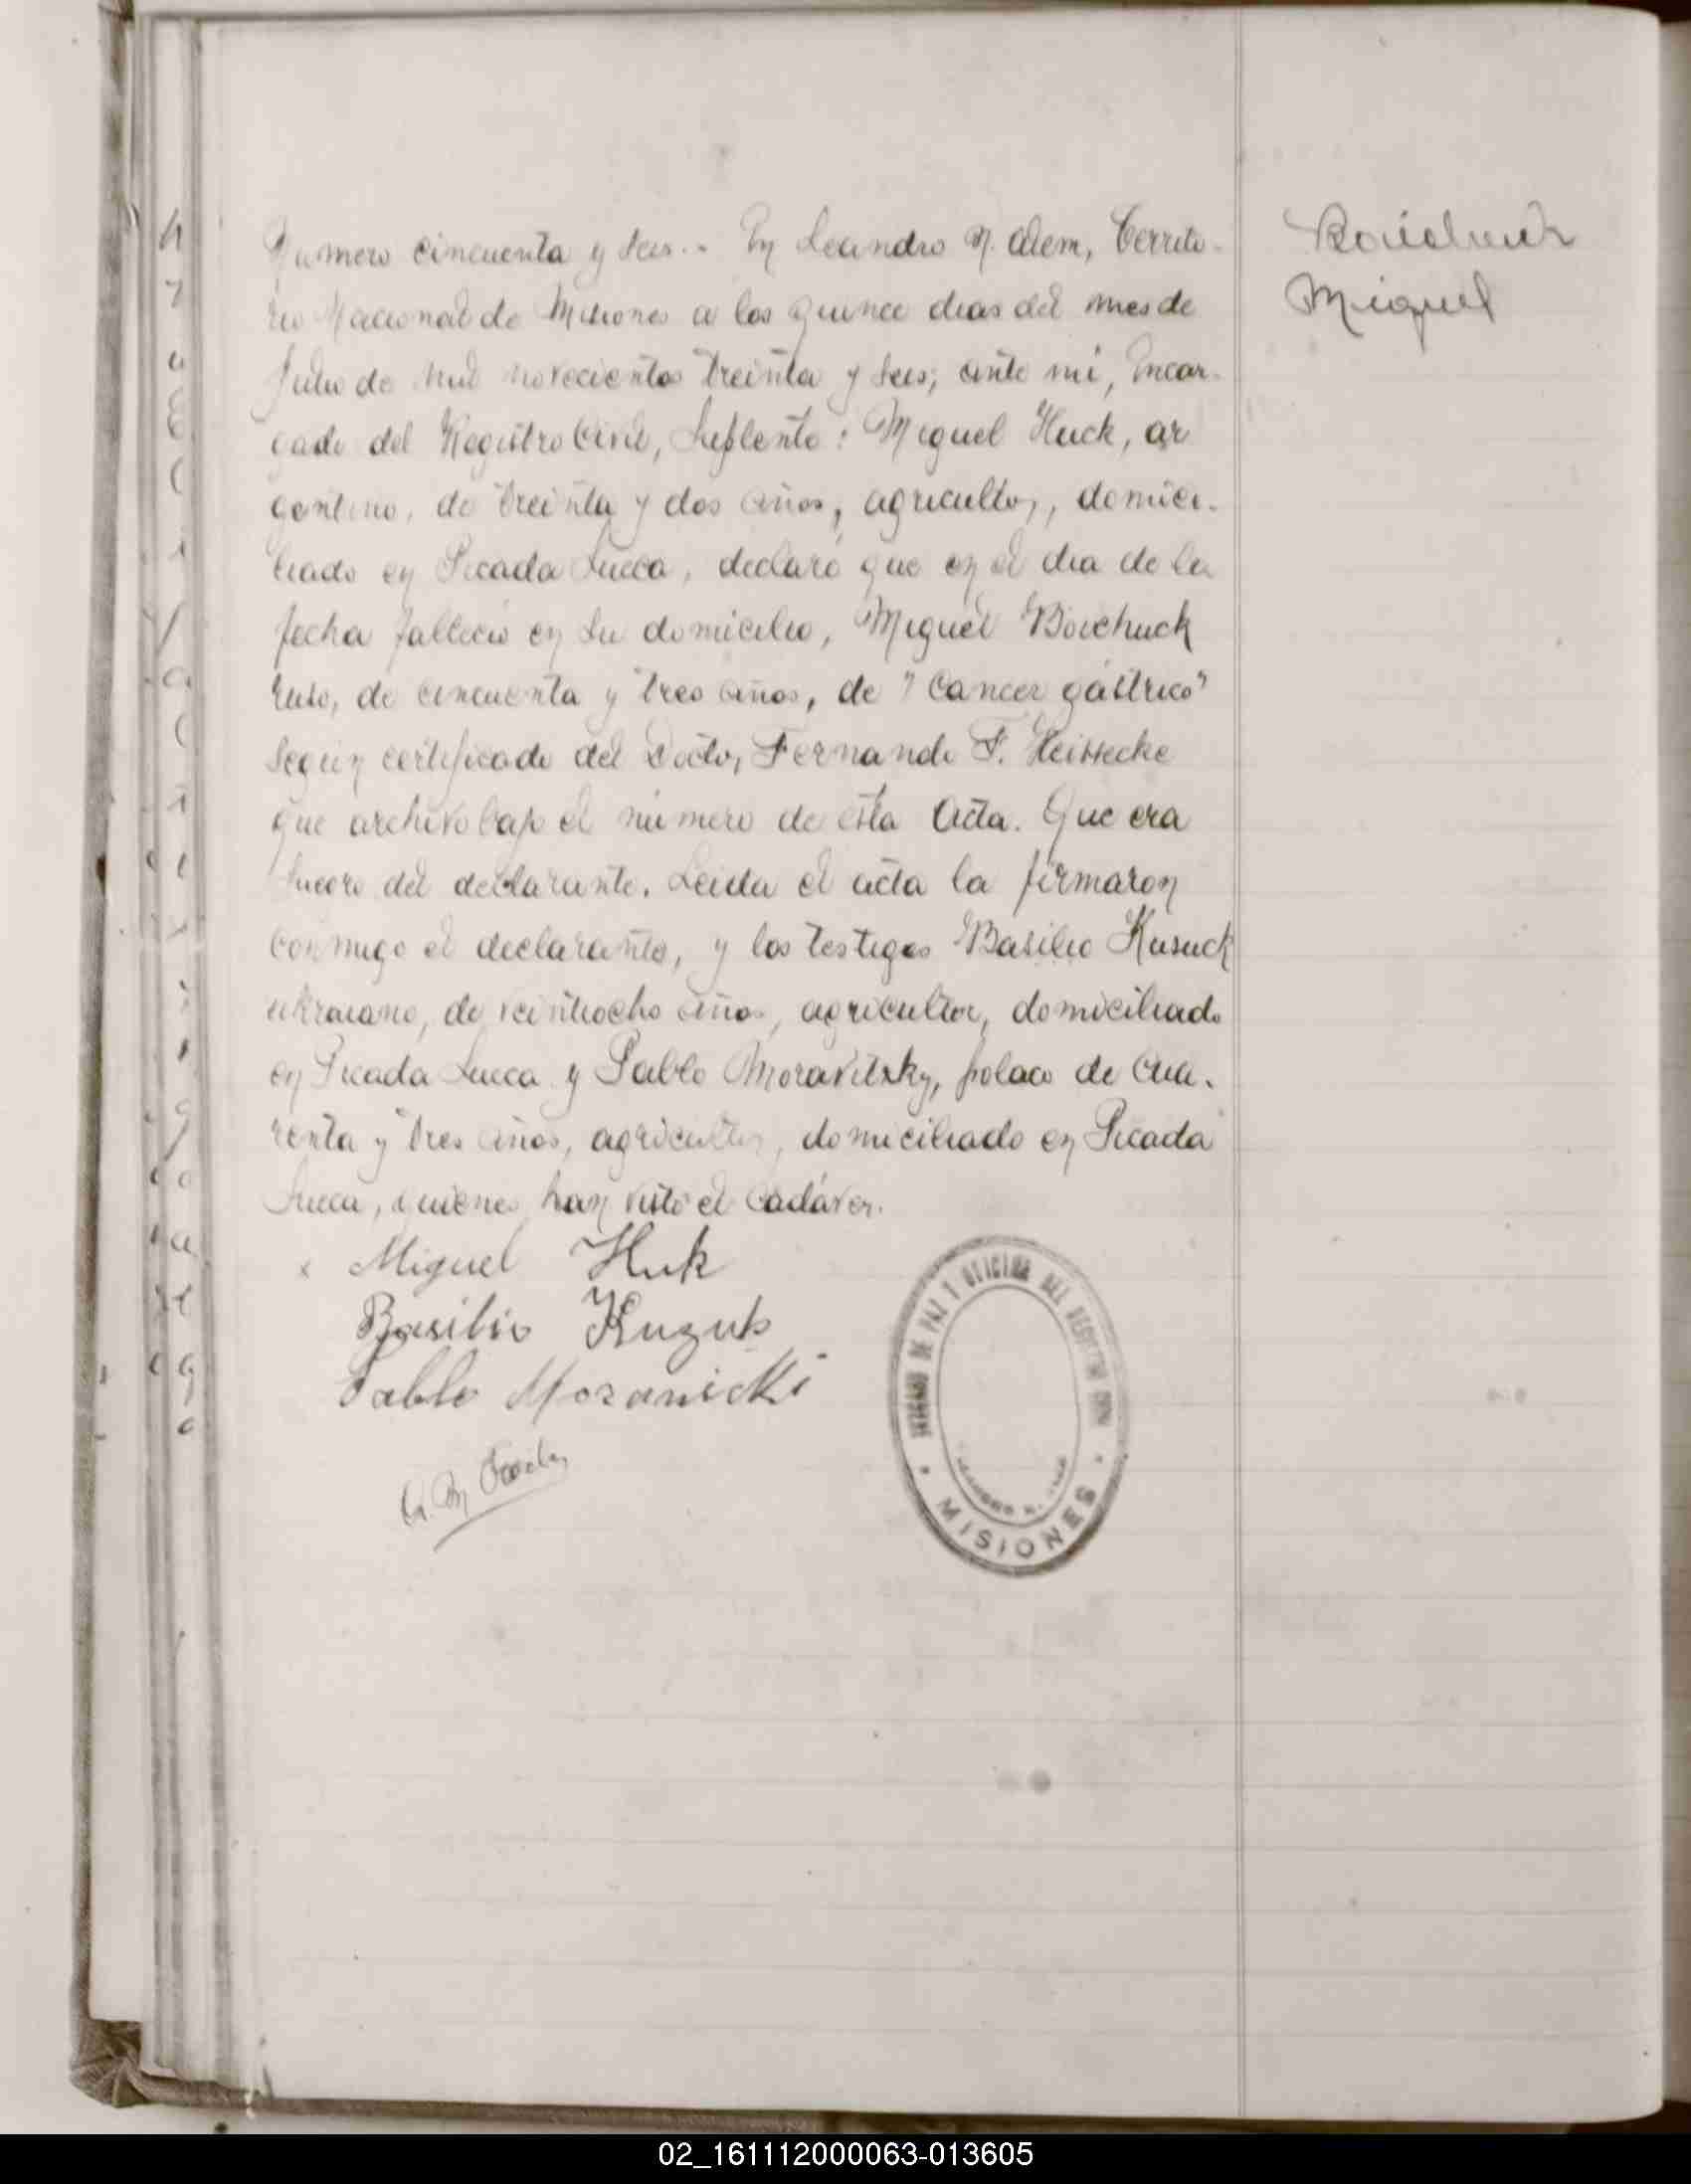 Boichuck
Miguel
Numero cincuenta y seis.. En Leandro N. Alem, Territo-
rio Nacional de Misiones a los quince dias del mes de
Julio de mil novecientos treinta y seis, ante mi, Encar-
gado del Registro Civil, Suplente: Miguel Huck, ar
gentino, de treinta y dos años, agricultor, domici-
liado en Picada Sueca, declaró que en el dia de la
fecha falleció en su domicilio, Miguel Boichuck
ruso, de cincuenta y tres años, de "Cancer gástrico"
según certificado del Doctor Fernando F. Heissecke
que archivo bajo el número de esta Acta. Que era
suegro del declarante. Leida el acta la firmaron
conmigo el declarante, y los testigos Basilio Kusuck
ukraiano, de veintiocho años, agricultor, domiciliado
en Picada Sueca y Pablo Moravitzky, polaco de cua-
renta y tres años, agricultor, domiciliado en Picada
Sueca, quienes han visto el cadáver.
x Miguel Huk
Basilio Kuzuk
Pablo Morawicki
JUZGADO DE PAZ Y OFICINA DEL REGISTRO CIVIL
LEANDRO N. ALEM
MISIONES
02_161112000063-013605